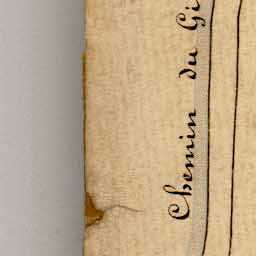 Chemin du Gi